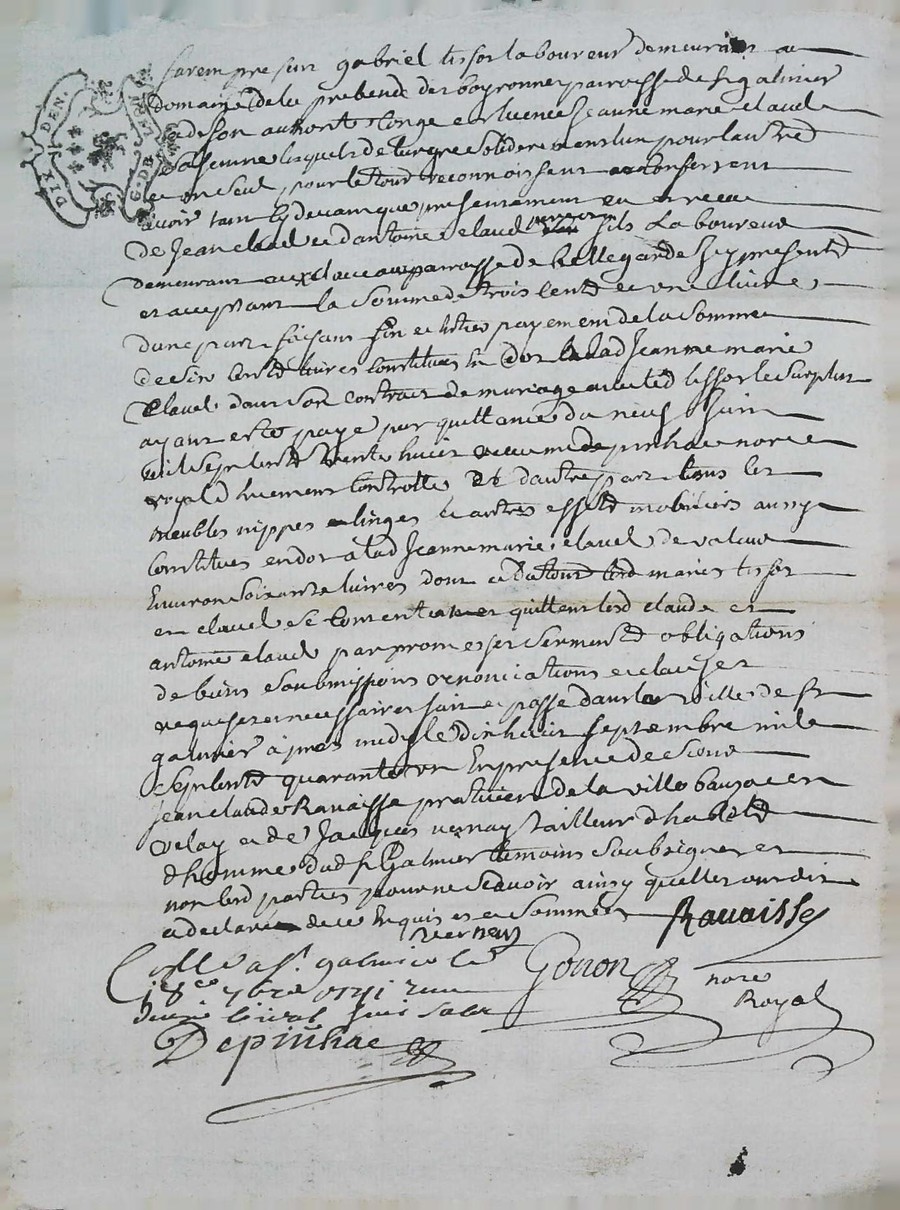 furent presents gabriel tissot laboureur demeurant au
domaine de la prebende des bayronner parroisse de st galmier
& de son authorité congé et licence jeanne marie claud
sa femme lesquels de leur gre solidairement lun pour lautre
et un seul pour le tout reconnoissent et confessent
avoir tant cy devant que presentement eu et receu
de jean claud et dantoine claud fils laboureur
demeurant parroisse de bellegarde icy presents
et acceptant la somme de trois cents et une livre
dune part faisant fin et entier payement de la somme
de six cents livres constitués en dot a lad jeanne marie
claud dans son contrat de mariage avec led tissot le surplus
ayant esté payé par quittance du neuf juin
mil sept cents trente huict receu me depinhac nore
royal duement controllé et dautre part tous les
meubles nippes linges et autres effets mobiliers aussy
constitués en dot a lad jeanne marie claud de valeur
environ soixante livres dont et du tout lesd mariés tissot
et claud se contentent et quittent lesd claude et
antoine claud par promesses serments obligations
de biens soubmissions renonciations et clauses
requises et necessaires fait et passé dans la ville de st
galmier apres midy le dixhuit septembre mil
sept cents quarante un en presence de sieur
jean claude Ravaisse praticien de la ville bauzac en
velay et de jacques vernay tailleur dhabits
dhomme dud st Galmier temoins soubsignes et
non lesd parties pour ne scavoir ainsy quelles ont dit
et declaré de ce enquis et sommées Ravaisse
vernay
Collé a st galmier le Gonon
18e 7bre 1741 receu nore
douze sols Royal
Depinhac
DIX DEN.
G. DE LYON